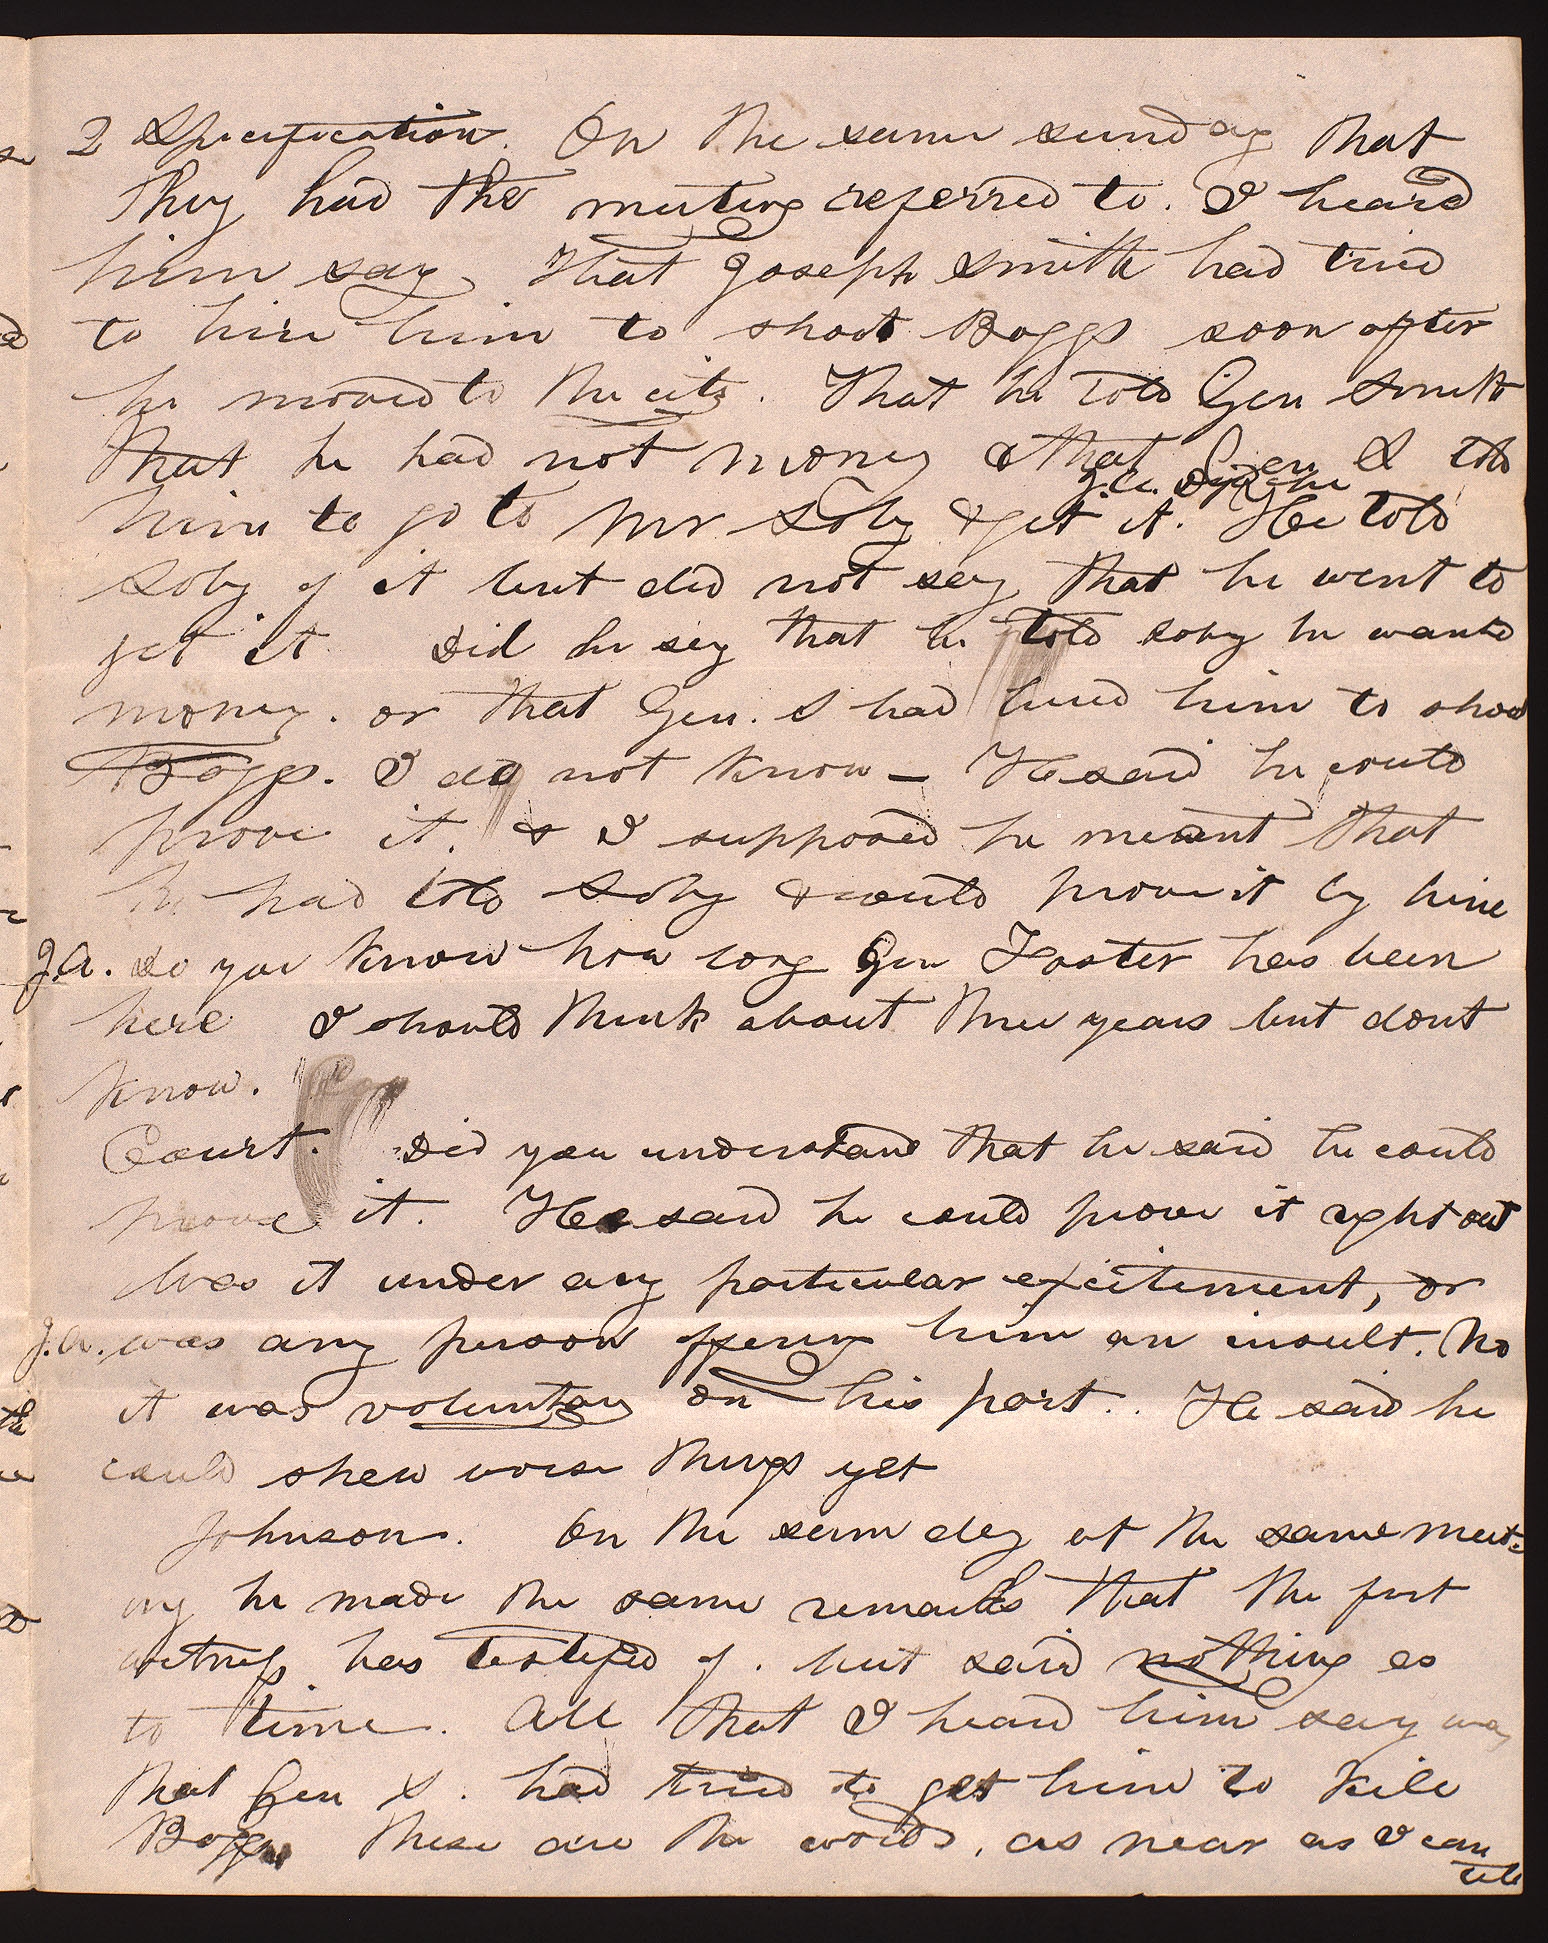 2 Specification. On the same sunday that
they had the meeting referred to. I heard
him say, That Joseph Smith had tried
to hire him to shoot Boggs soon after
he moved to the city. That he told Gen Smith
that he had not money & that Gen S told
J.A. Did he
him to go to Mr Soby & get it. He told
Soby of it but did not say that he went to
get it Did he say that he told soby he wanted
money. or that Gen. S had hired him to shoot
Boggs. I do not know — He said he could
prove it. & I supposed he meant that
he had told Soby & could prove it by him
J.A. do you know how long Gen Foster has been
here I should think about three years but dont
know.
Court. Did you understand that he said he could
prove it. He said he could prove it right out
Was it under any particular excitement, or
J.A. was any person offering him an insult. No
it was voluntary on his part. He said he
could shew worse things yet
Johnson. On the same day at the same meet-
ing he made the same remarks that the first
witness has testified of. but said nothing as
to time. All that I heard him say was
that Gen S. had tried to get him to kill
Boggs These are the words, as near as I can
tell